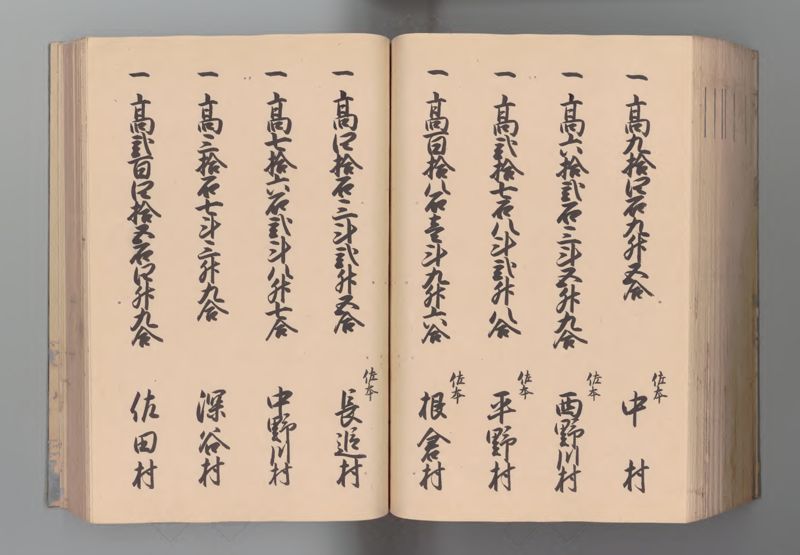 一 高九拾四石九升五合 佐本 中村
一 高六拾弐石三斗五升九合 佐本 西野川村
一 高弐拾七石八斗弐升八合 佐本 平野村
一 高百拾八石壱斗九升六合 佐本 根倉村
一 高四拾石三斗弐升五合 佐本 長追村
一 高七拾六石弐斗八升七合 中野川村
一 高三拾石七斗三升九合 深谷村
一 高弐百四拾五石四升九合 佐田村